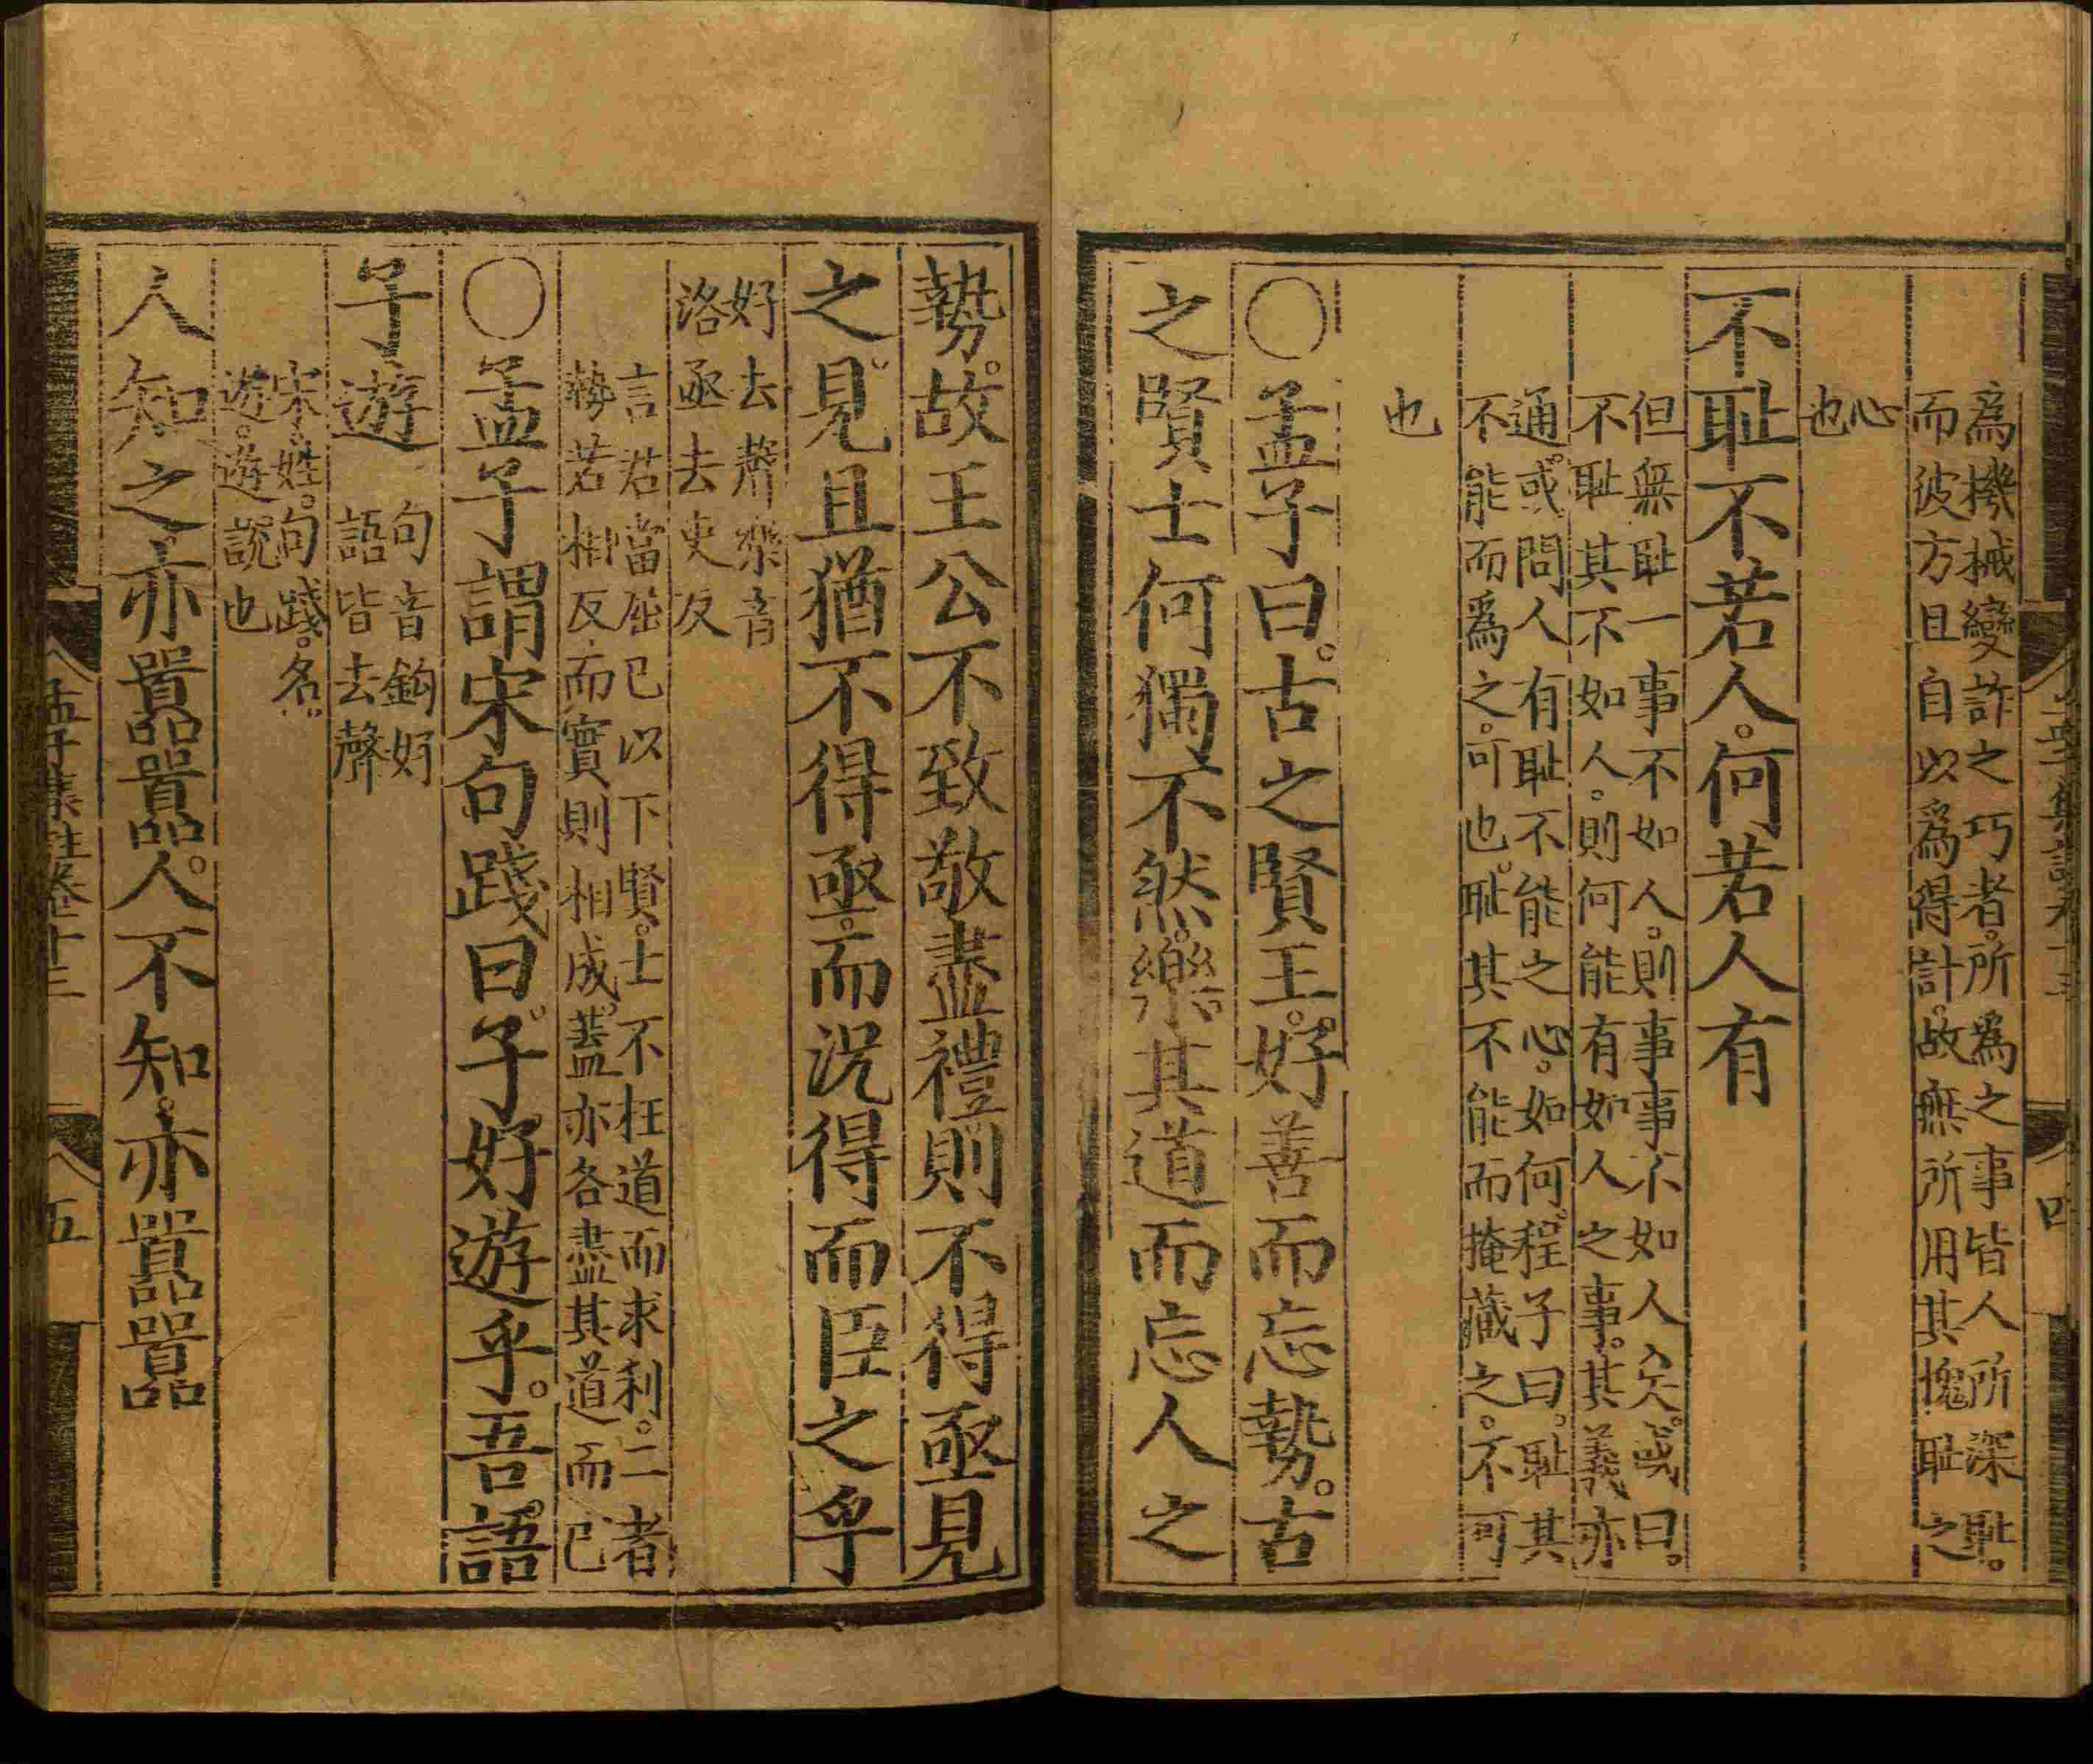 爲機械變詐之巧者。所爲之事皆人所深耻。
而彼方且自以爲得計。故無所用其愧耻之
心
也
不耻不若人。何若人有
但無耻一事不如人。則事事不如人矣。或曰。
不耻其不如人。則何能有如人之事。其義亦
通。或問人有耻不能之心。如何。程子曰。耻其
不能而爲之。可也。耻其不能而掩藏之。不可
也
〇孟子曰。古之賢王。好善而忘勢。古
之賢士何獨不然。樂其道而忘人之
勢。故王公不致敬盡禮則不得亟見
之。見且猶不得亟。而況得而臣之乎
好去聲樂音
洛亟去吏反
言君當屈己以下賢。士不枉道而求利。二者
勢若相反。而實則相成。蓋亦各盡其道而已
〇孟子謂宋句踐曰。子好遊乎。吾語
子遊
句音鈎好
語皆去聲
宋。姓。句踐。名。
遊。遊說也
人知之。亦囂囂。人不知。亦囂囂
孟子集註卷十三
五
四